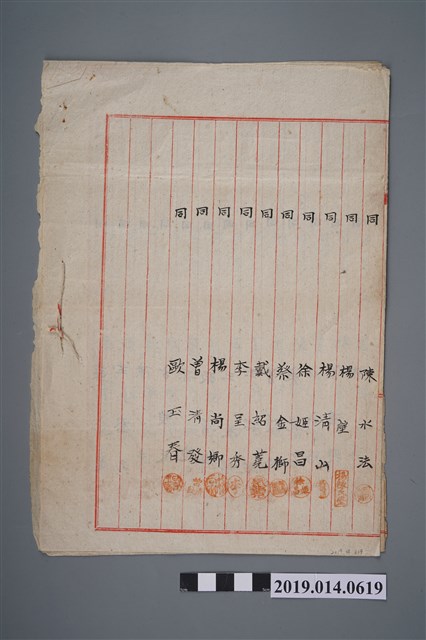 同 陳水法
同 楊
同 楊清山
同 徐姬昌
同 蔡金獅
同 戴
同 李呈秀
同 楊尚娜
同 曾清發
同 歐玉春
2019.014.0619